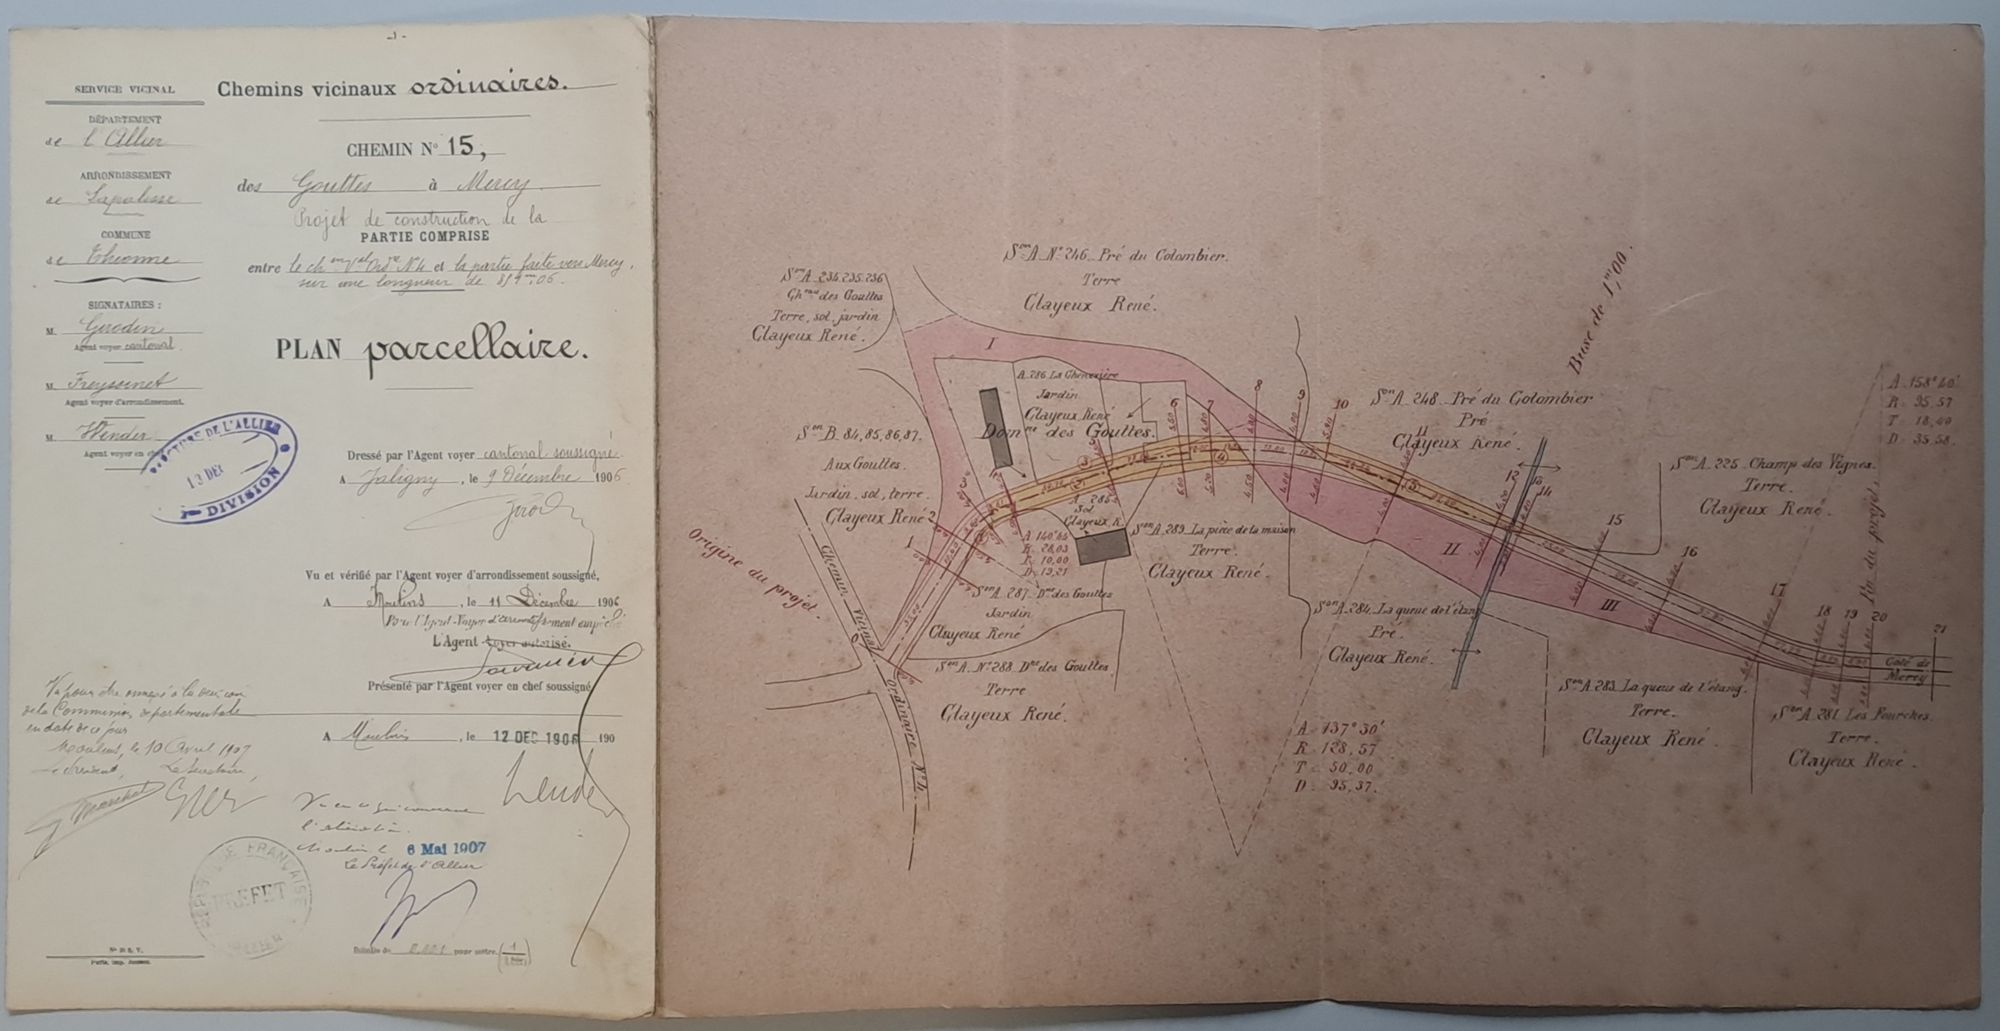 - 1 -
SERVICE VICINAL
DÉPARTEMENT
de l'Allier
ARRONDISSEMENT
de Lapalisse
COMMUNE
de Thionne
SIGNATAIRES :
M. Girodin
Agent voyer cantonal
M. Freyssinet
Agent voyer d'arrondissement.
M. Wender
Agent voyer en chef
PRÉFECTURE DE L'ALLIER
13 DEC
DIVISION
Chemins vicinaux ordinaires.
CHEMIN N° 15,
des Gouttes à Mercy
Projet de construction de la
PARTIE COMPRISE
entre le ch.in V.al Ord.re N°4 et la partie faite vers Mercy,
sur une longueur de 819m,06.
PLAN parcellaire.
Dressé par l'Agent voyer cantonal soussigné.
A Jaligny, le 9 Décembre 1906
Vu et vérifié par l'Agent voyer d'arrondissement soussigné,
A Moulins, le 11 Décembre 1906
Pour l'Agent-Voyer d'arrondissement empêché
L'Agent voyer autorisé.
Présenté par l'Agent voyer en chef soussigné
A Moulins, le 12 DEC 1906 190
Vu pour être annexé à la décision
de la Commission départementale
en date de ce jour
Moulins, le 10 Avril 1907
Le Président, Le Secrétaire,
Vu en ce qui concerne
Moulins le 6 Mai 1907
Le Préfet de l'Allier
RÉPUBLIQUE FRANÇAISE
PREFET
ALLIER
N° 20 S. V.
Paris, Imp.
0,001 pour mètre.
S.on A. N° 246 Pré du Colombier.
Terre
Clayeux René.
S.on A. 234. 235. 236
Ch.eau des Gouttes
Terre, sol, jardin
Clayeux René.
I
A. 286. La Chenevière
Jardin
Clayeux René
Dom.ne des Gouttes.
S.on B. 84, 85, 86, 87.
Aux Gouttes.
Jardin, sol, terre.
Clayeux René
Buse de 1,m00.
S.on A. 248 Pré du Colombier
Pré
Clayeux René.
A = 158°40'
R = 95,57
T = 18,00
D = 35,58.
S.on A. 225 Champ des Vignes.
Terre.
Clayeux René.
Fin du projet.
1
2
6
7
8
9
10
11
12
13
14
15
16
17
18
19
20
21
A. 285
Sol
Clayeux R.
S.on A. 289. La pièce de la maison
Terre.
Clayeux René.
II
III
Origine du projet.
Chemin Vicinal Ordinaire N° 4.
A = 140°45
R = 28,03
T = 10,00
D = 19,21
S.on A. 287. D.ne des Gouttes
Jardin
Clayeux René
S.on A. 284. La queue de l'étang
Pré.
Clayeux René.
S.on A. N° 288. D.ne des Gouttes
Terre
Clayeux René.
Coté de
Mercy
S.on A. 283. La queue de l'étang.
Terre.
Clayeux René.
S.on A. 281. Les Fourches.
Terre.
Clayeux René.
A = 137°30'
R = 128,57
T = 50,00
D = 95,37.